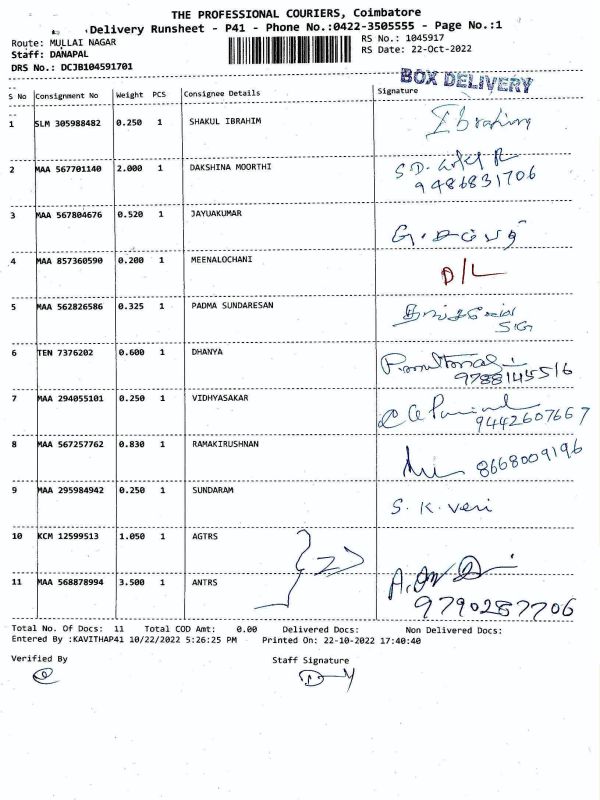 THE PROFESSIONAL COURIERS, Coimbatore
Delivery Runsheet - P41 - Phone No.:0422-3505555 - Page No.:1
Route: MULLAI NAGAR RS No.: 1045917
Staff: DANAPAL RS Date: 22-Oct-2022
DRS No.: DCJB104591701
BOX DELIVERY
S No Consignment No Weight PCS Consignee Details Signature
1 SLM 305988482 0.250 1 SHAKUL IBRAHIM Ibrahim
2 MAA 567701140 2.000 1 DAKSHINA MOORTHI S.D.
9486831706
3 MAA 567804676 0.520 1 JAYUAKUMAR
4 MAA 857360590 0.200 1 MEENALOCHANI D/L
5 MAA 562826586 0.325 1 PADMA SUNDARESAN
6 TEN 7376202 0.600 1 DHANYA
9788145516
7 MAA 294055101 0.250 1 VIDHYASAKAR
9442607667
8 MAA 567257762 0.830 1 RAMAKIRUSHNAN 8668009196
9 MAA 295984942 0.250 1 SUNDARAM S. K. Veni
10 KCM 12599513 1.050 1 AGTRS
2
11 MAA 568878994 3.500 1 ANTRS
9790287706
Total No. Of Docs: 11 Total COD Amt: 0.00 Delivered Docs: Non Delivered Docs:
Entered By :KAVITHAP41 10/22/2022 5:26:25 PM Printed On: 22-10-2022 17:40:40
Verified By Staff Signature